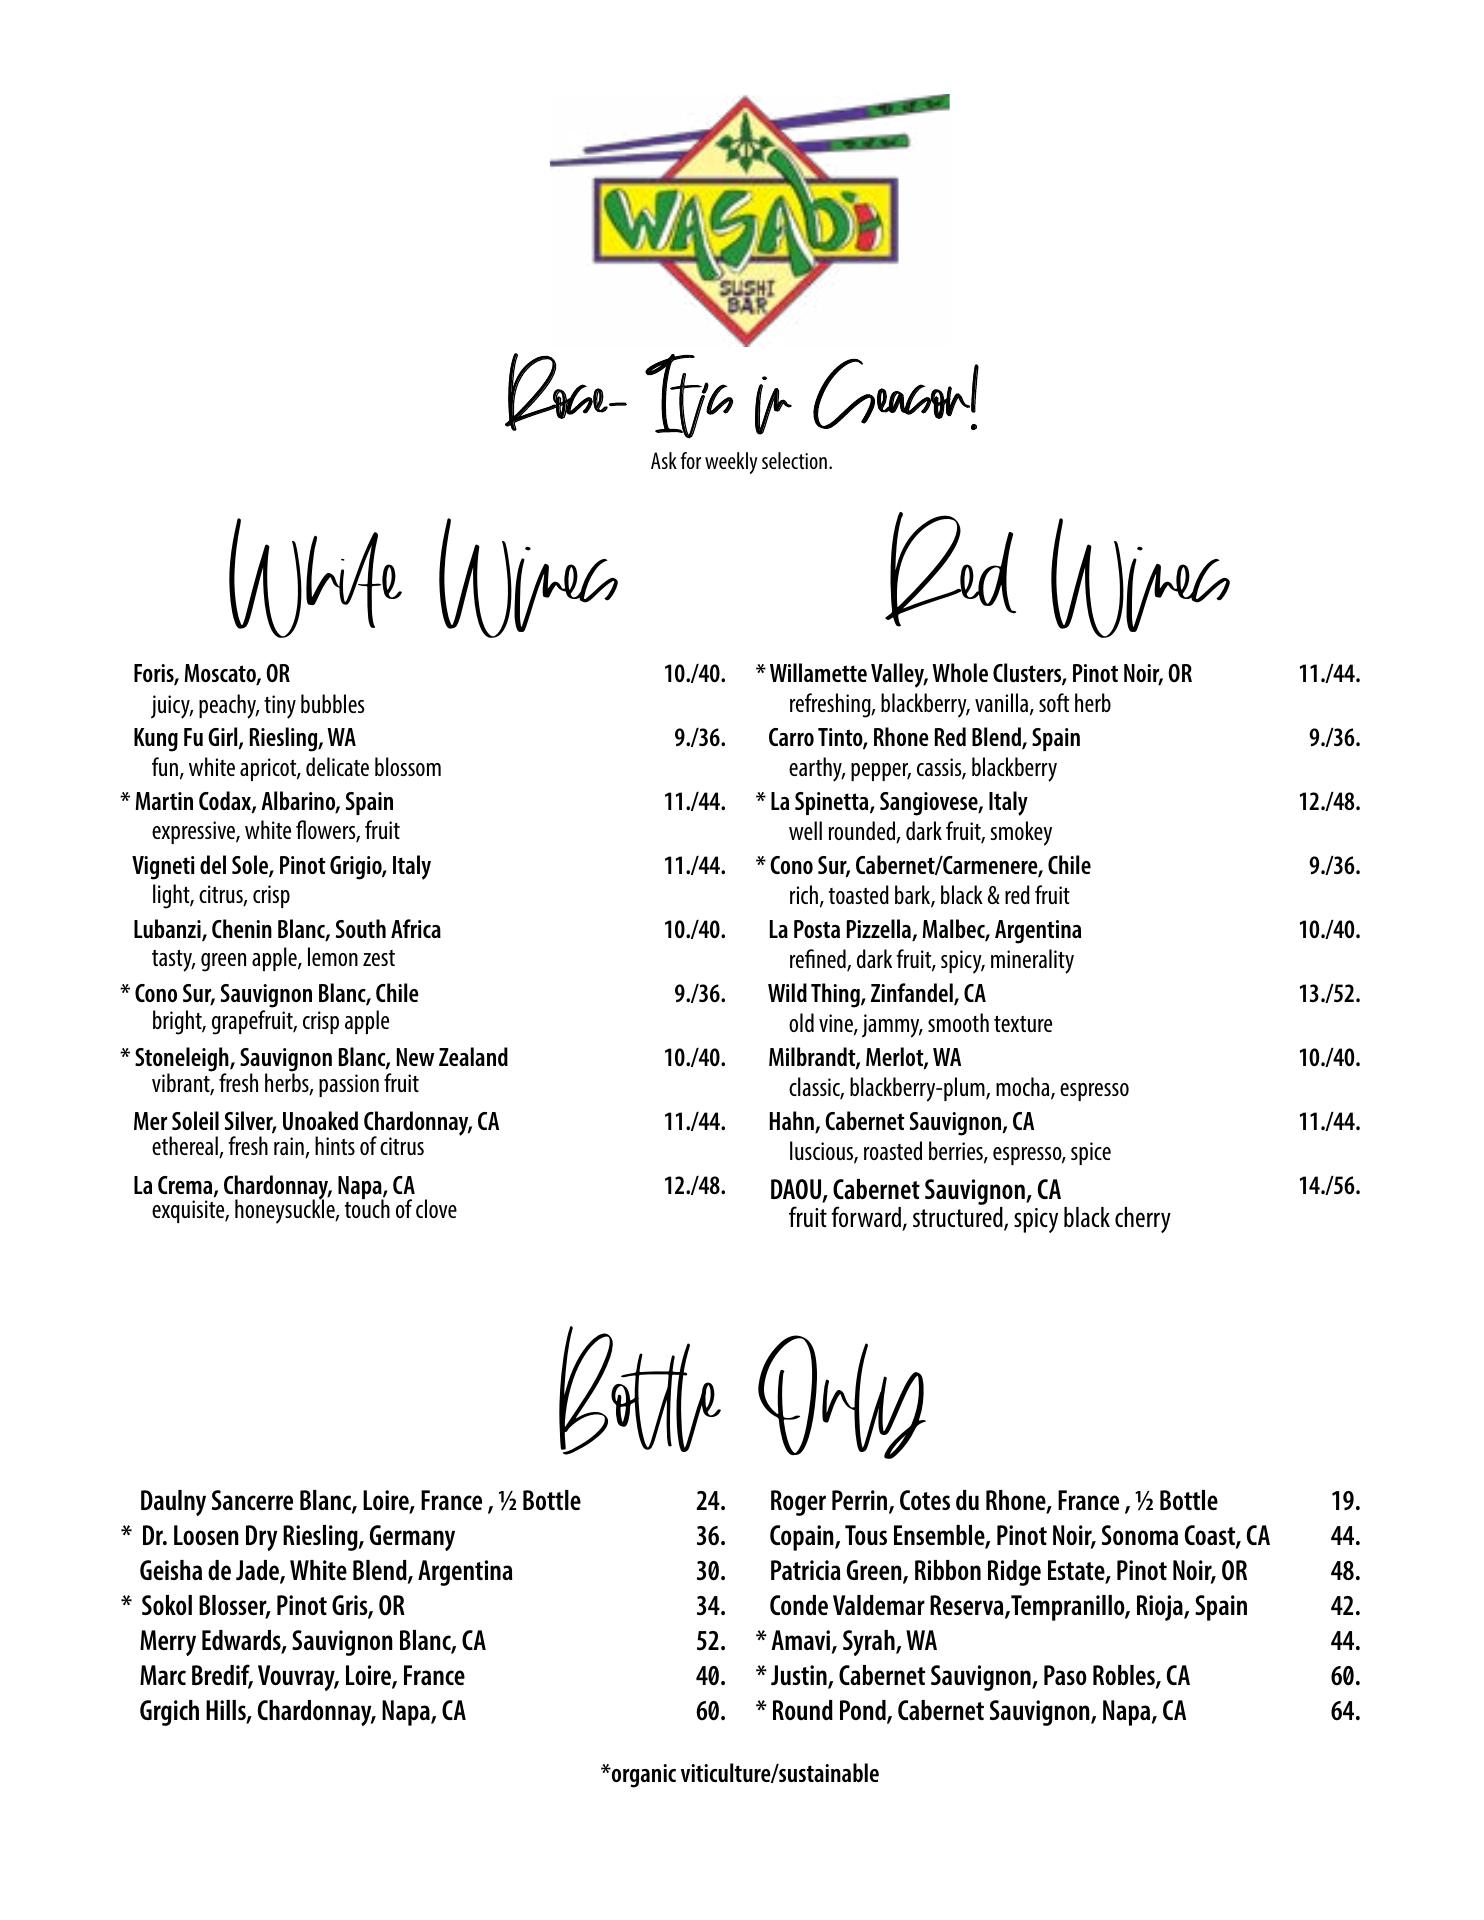 WASABI
SUSHI
BAR
Rose- It's in Season!
Ask for weekly selection.
White Wines
Foris, Moscato, OR 10./40.
juicy, peachy, tiny bubbles
Kung Fu Girl, Riesling, WA 9./36.
fun, white apricot, delicate blossom
* Martin Codax, Albarino, Spain 11./44.
expressive, white flowers, fruit
Vigneti del Sole, Pinot Grigio, Italy 11./44.
light, citrus, crisp
Lubanzi, Chenin Blanc, South Africa 10./40.
tasty, green apple, lemon zest
* Cono Sur, Sauvignon Blanc, Chile 9./36.
bright, grapefruit, crisp apple
* Stoneleigh, Sauvignon Blanc, New Zealand 10./40.
vibrant, fresh herbs, passion fruit
Mer Soleil Silver, Unoaked Chardonnay, CA 11./44.
ethereal, fresh rain, hints of citrus
La Crema, Chardonnay, Napa, CA 12./48.
exquisite, honeysuckle, touch of clove
Red Wines
* Willamette Valley, Whole Clusters, Pinot Noir, OR 11./44.
refreshing, blackberry, vanilla, soft herb
Carro Tinto, Rhone Red Blend, Spain 9./36.
earthy, pepper, cassis, blackberry
* La Spinetta, Sangiovese, Italy 12./48.
well rounded, dark fruit, smokey
* Cono Sur, Cabernet/Carmenere, Chile 9./36.
rich, toasted bark, black & red fruit
La Posta Pizzella, Malbec, Argentina 10./40.
refined, dark fruit, spicy, minerality
Wild Thing, Zinfandel, CA 13./52.
old vine, jammy, smooth texture
Milbrandt, Merlot, WA 10./40.
classic, blackberry-plum, mocha, espresso
Hahn, Cabernet Sauvignon, CA 11./44.
luscious, roasted berries, espresso, spice
DAOU, Cabernet Sauvignon, CA 14./56.
fruit forward, structured, spicy black cherry
Bottle Only
Daulny Sancerre Blanc, Loire, France , ½ Bottle 24.
* Dr. Loosen Dry Riesling, Germany 36.
Geisha de Jade, White Blend, Argentina 30.
* Sokol Blosser, Pinot Gris, OR 34.
Merry Edwards, Sauvignon Blanc, CA 52.
Marc Bredif, Vouvray, Loire, France 40.
Grgich Hills, Chardonnay, Napa, CA 60.
Roger Perrin, Cotes du Rhone, France , ½ Bottle 19.
Copain, Tous Ensemble, Pinot Noir, Sonoma Coast, CA 44.
Patricia Green, Ribbon Ridge Estate, Pinot Noir, OR 48.
Conde Valdemar Reserva,Tempranillo, Rioja, Spain 42.
* Amavi, Syrah, WA 44.
* Justin, Cabernet Sauvignon, Paso Robles, CA 60.
* Round Pond, Cabernet Sauvignon, Napa, CA 64.
*organic viticulture/sustainable